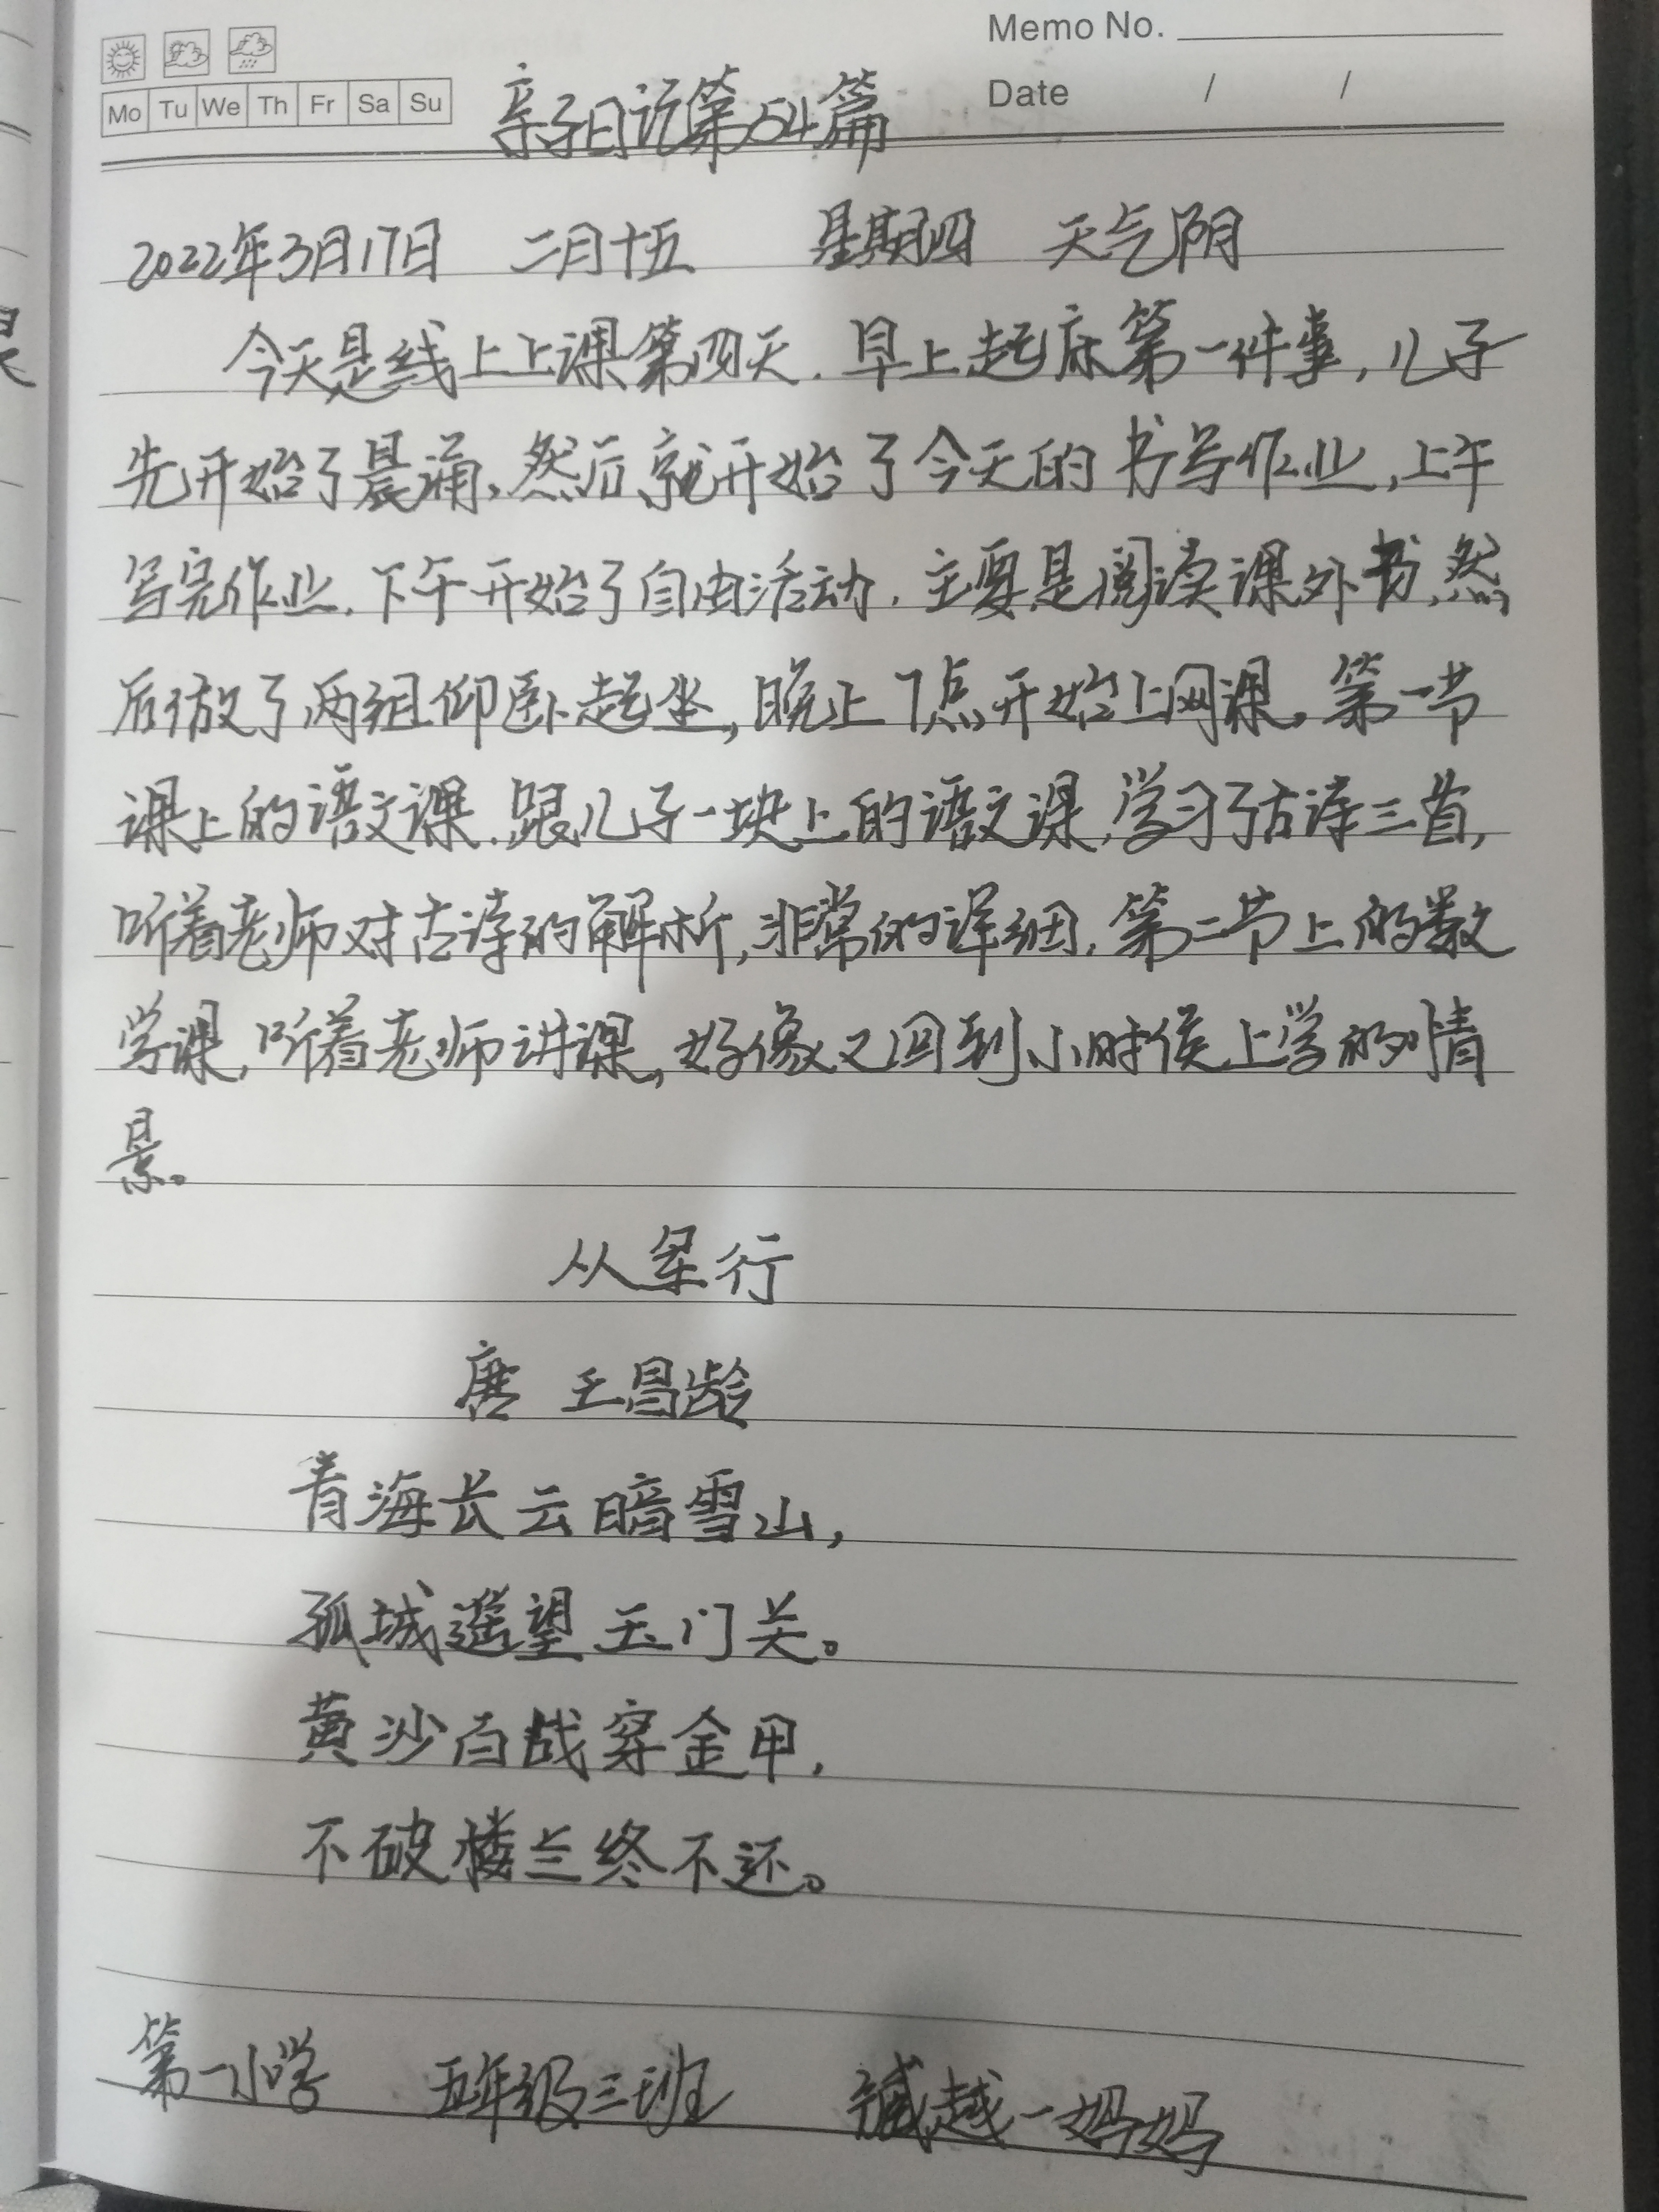 Memo No.
Mo Tu We Th Fr Sa Su
Date / /
亲子日记第54篇
2022年3月17日 二月十五 星期四 天气阴
今天是线上上课第四天.早上起床第一件事,儿子
先开始了晨诵,然后就开始了今天的书写作业,上午
写完作业.下午开始了自由活动.主要是阅读课外书,然
后做了两组仰卧起坐,晚上7点开始上网课,第一节
课上的语文课.跟儿子一块上的语文课,学习了古诗三首,
听着老师对古诗的解析,非常的详细,第二节上的数
学课,听着老师讲课,好像又回到小时侯上学的情
景。
从军行
唐 王昌龄
青海长云暗雪山,
孤城遥望玉门关。
黄沙百战穿金甲,
不破楼兰终不还。
第一小学 五年级三班 臧越一妈妈